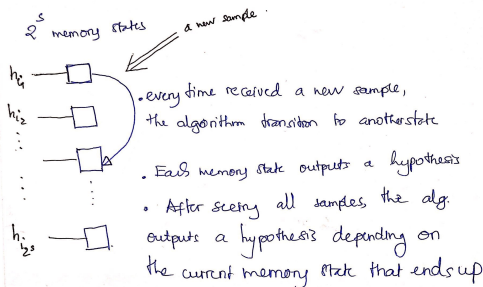 2^s memory states
a new sample.
h_{i_1}
• every time received a new sample,
h_{i_2}
the algorithm transition to another state
• Each memory state outputs a hypothesis
• After seeing all samples, the alg.
h_{i_{2^s}}
outputs a hypothesis depending on
the current memory state that ends up